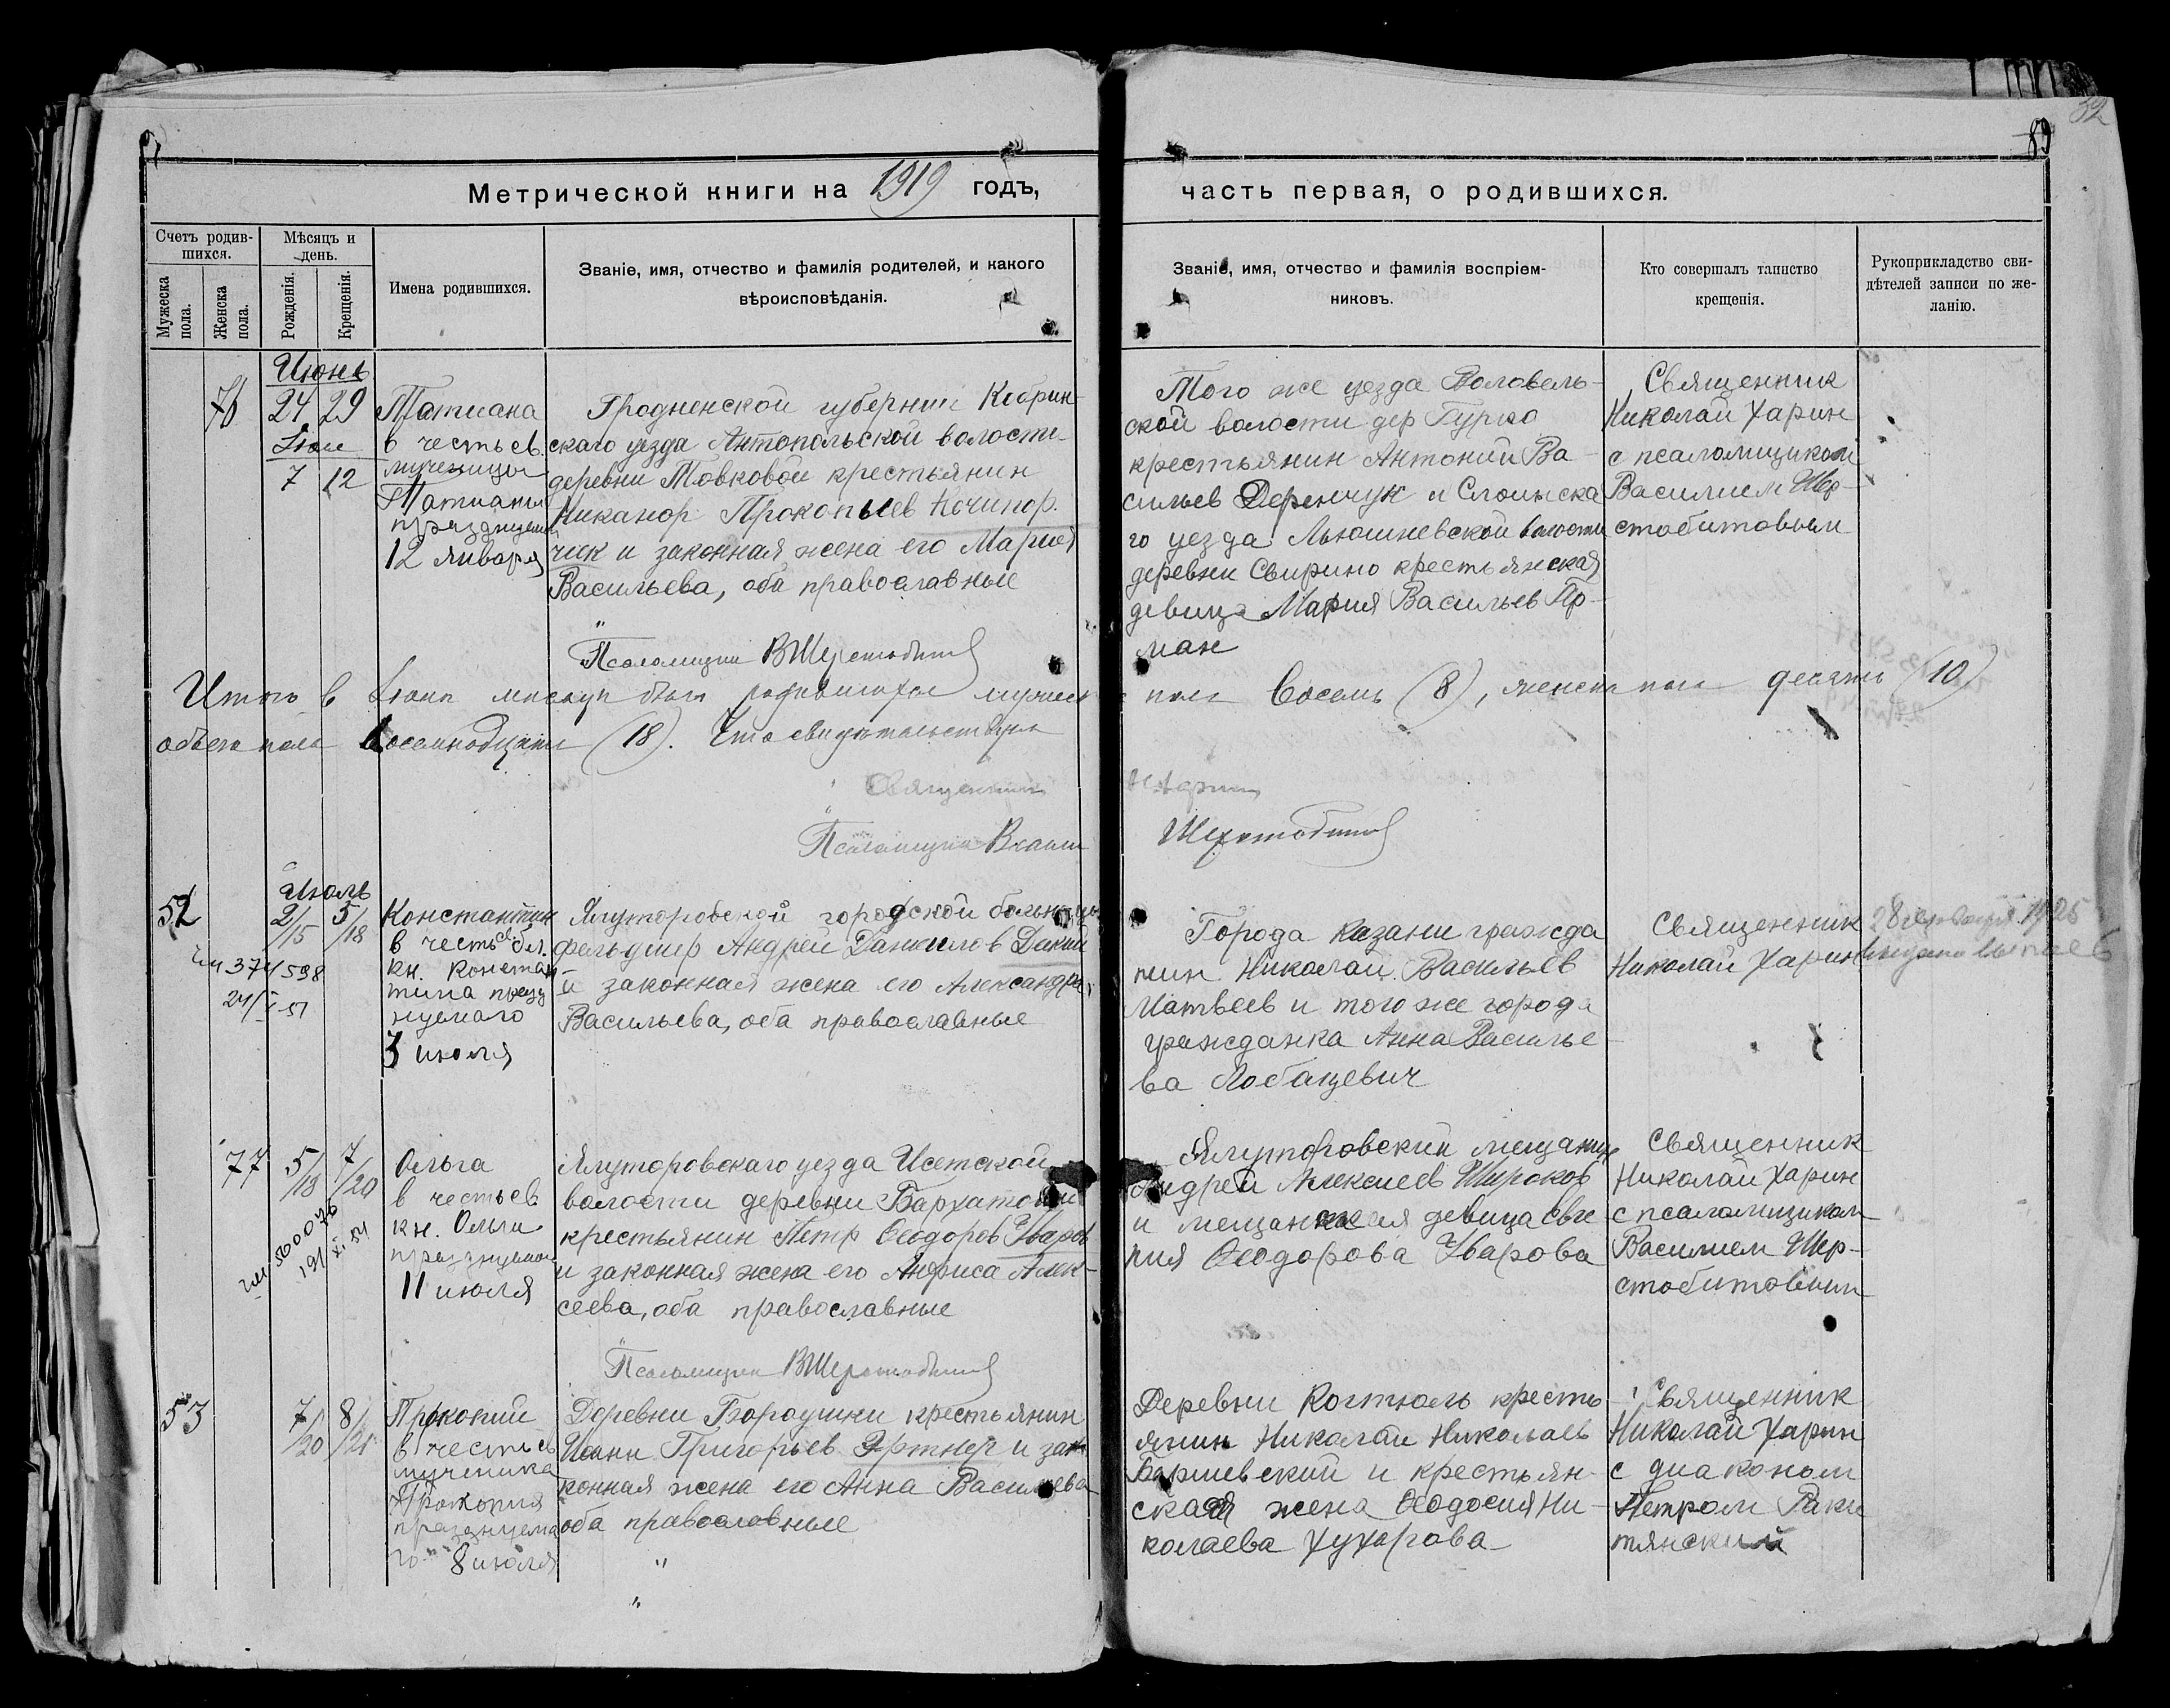 89
Метрической книги на 1919 годъ,
часть первая, о родившихся.
Счетъ родив-
шихся.
Мужеска
пола.
Женска
пола.
Мѣсяцъ и
день.
Рожденія.
Крещенія.
Имена родившихся.
Званіе, имя, отчество и фамилія родителей, и какого
вѣроисповѣданія.
Званіе, имя, отчество и фамилія воспріем-
никовъ.
Кто совершалъ таинство
крещенія.
Рукоприкладство сви-
дѣтелей записи по же-
ланію.
Июнь
76
24 29
7 12
Татиана
в честь св.
мученицы
Татианы
12 января
Гродненской губернии Кобрин-
скаго уезда Антопольской волости
деревни Товковой крестьянин
Никанор Прокопьев Ничипор.
чик и законная жена его Мария
Васильева, оба православные
Того же уезда
ской волости дер
крестьянин Антоний Ва-
сильев Деренчук и Слонимска
го уезда волости
деревни Свирино крестьянская
девица Мария Васильев Пр-
ман
Священник
Николай Харин
с псаломщиком
Василием Шер-
стобитовым
Псаломщик ВШерстобитов
Итого в месяце родившихся мужеск
пола восемь (8), женска пола десять (10)
обоего пола восемнадцать (18). Что свидетельствуем
Священник Н Харин
Псаломщик Шерстобитов
Июль
52
2/15 5/18
374598
Константин
в честь св. бл.
кн. Констан
тина праздн
нуемаго
3 июля
Ялуторовской городской больницы
фельдшер Андрей Данилов Дикий
и законная жена его Александра
Васильева, оба православные
Города Казани гражда
нин Николай Васильев
Матвеев и того же города
гражданка Анна Василье
ва Лобацевич
Священник
Николай Харин
1925
77
5/18 7/20
Ольга
в честь св
кн. Ольги
11 июля
Ялуторовскаго уезда Исетской
волости деревни Бархатовой
крестьянин Петр Феодоров Уваров
и законная жена его Анфиса Алек-
сеева, оба православные
Ялуторовский мещанин
Андрей Алексеев Широков
и мещанская девица Евге
ния Феодорова Уварова
Священник
Николай Харин
с псаломщиком
Василием Шер-
стобитовым
Псаломщик ВШерстобитов
53
7/20 8/21
Прокопий
в честь св
мученика
Прокопия
празднуема
го 8 июля
Деревни Бородушки крестьянин
Иоанн Григорьев Эртнер и зак
конная жена его Анна Васильева
оба православные
Деревни Коктюль кресть
янин Николай Николаев
Баршевский и крестьян-
ская жена Феодосия Ни-
колаева Хухорова
Священник
Николай Харин
с диаконом
Петром Раки
тянский